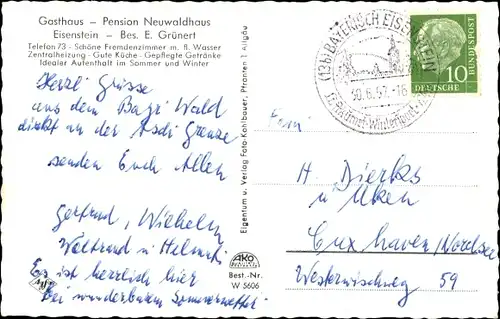 Gasthaus – Pension Neuwaldhaus
Eisenstein – Bes. E. Grünert
Telefon 73 - Schöne Fremdenzimmer m. fl. Wasser
Zentralheizung - Gute Küche - Gepflegte Getränke
Idealer Aufenthalt im Sommer und Winter
Herzl. Grüsse
aus dem Bayr. Wald
direkt an der Grenze
senden Euch Allen
Gertrud, Wilhelm,
Waltraud u. Helmut
Es ist herrlich hier
bei wunderbarem Sommerwetter
Eigentum u. Verlag Foto-Kohlbauer, Pfronten i. Allgäu
AKO
Best.-Nr.
W 5606
(13b) BAYERISCH EISENSTEIN
30.6.57.-18
10
DEUTSCHE
BUNDESPOST
Fam.
H. Dierks
u. Uken
Cuxhaven/Nordsee
Westerwischweg 59